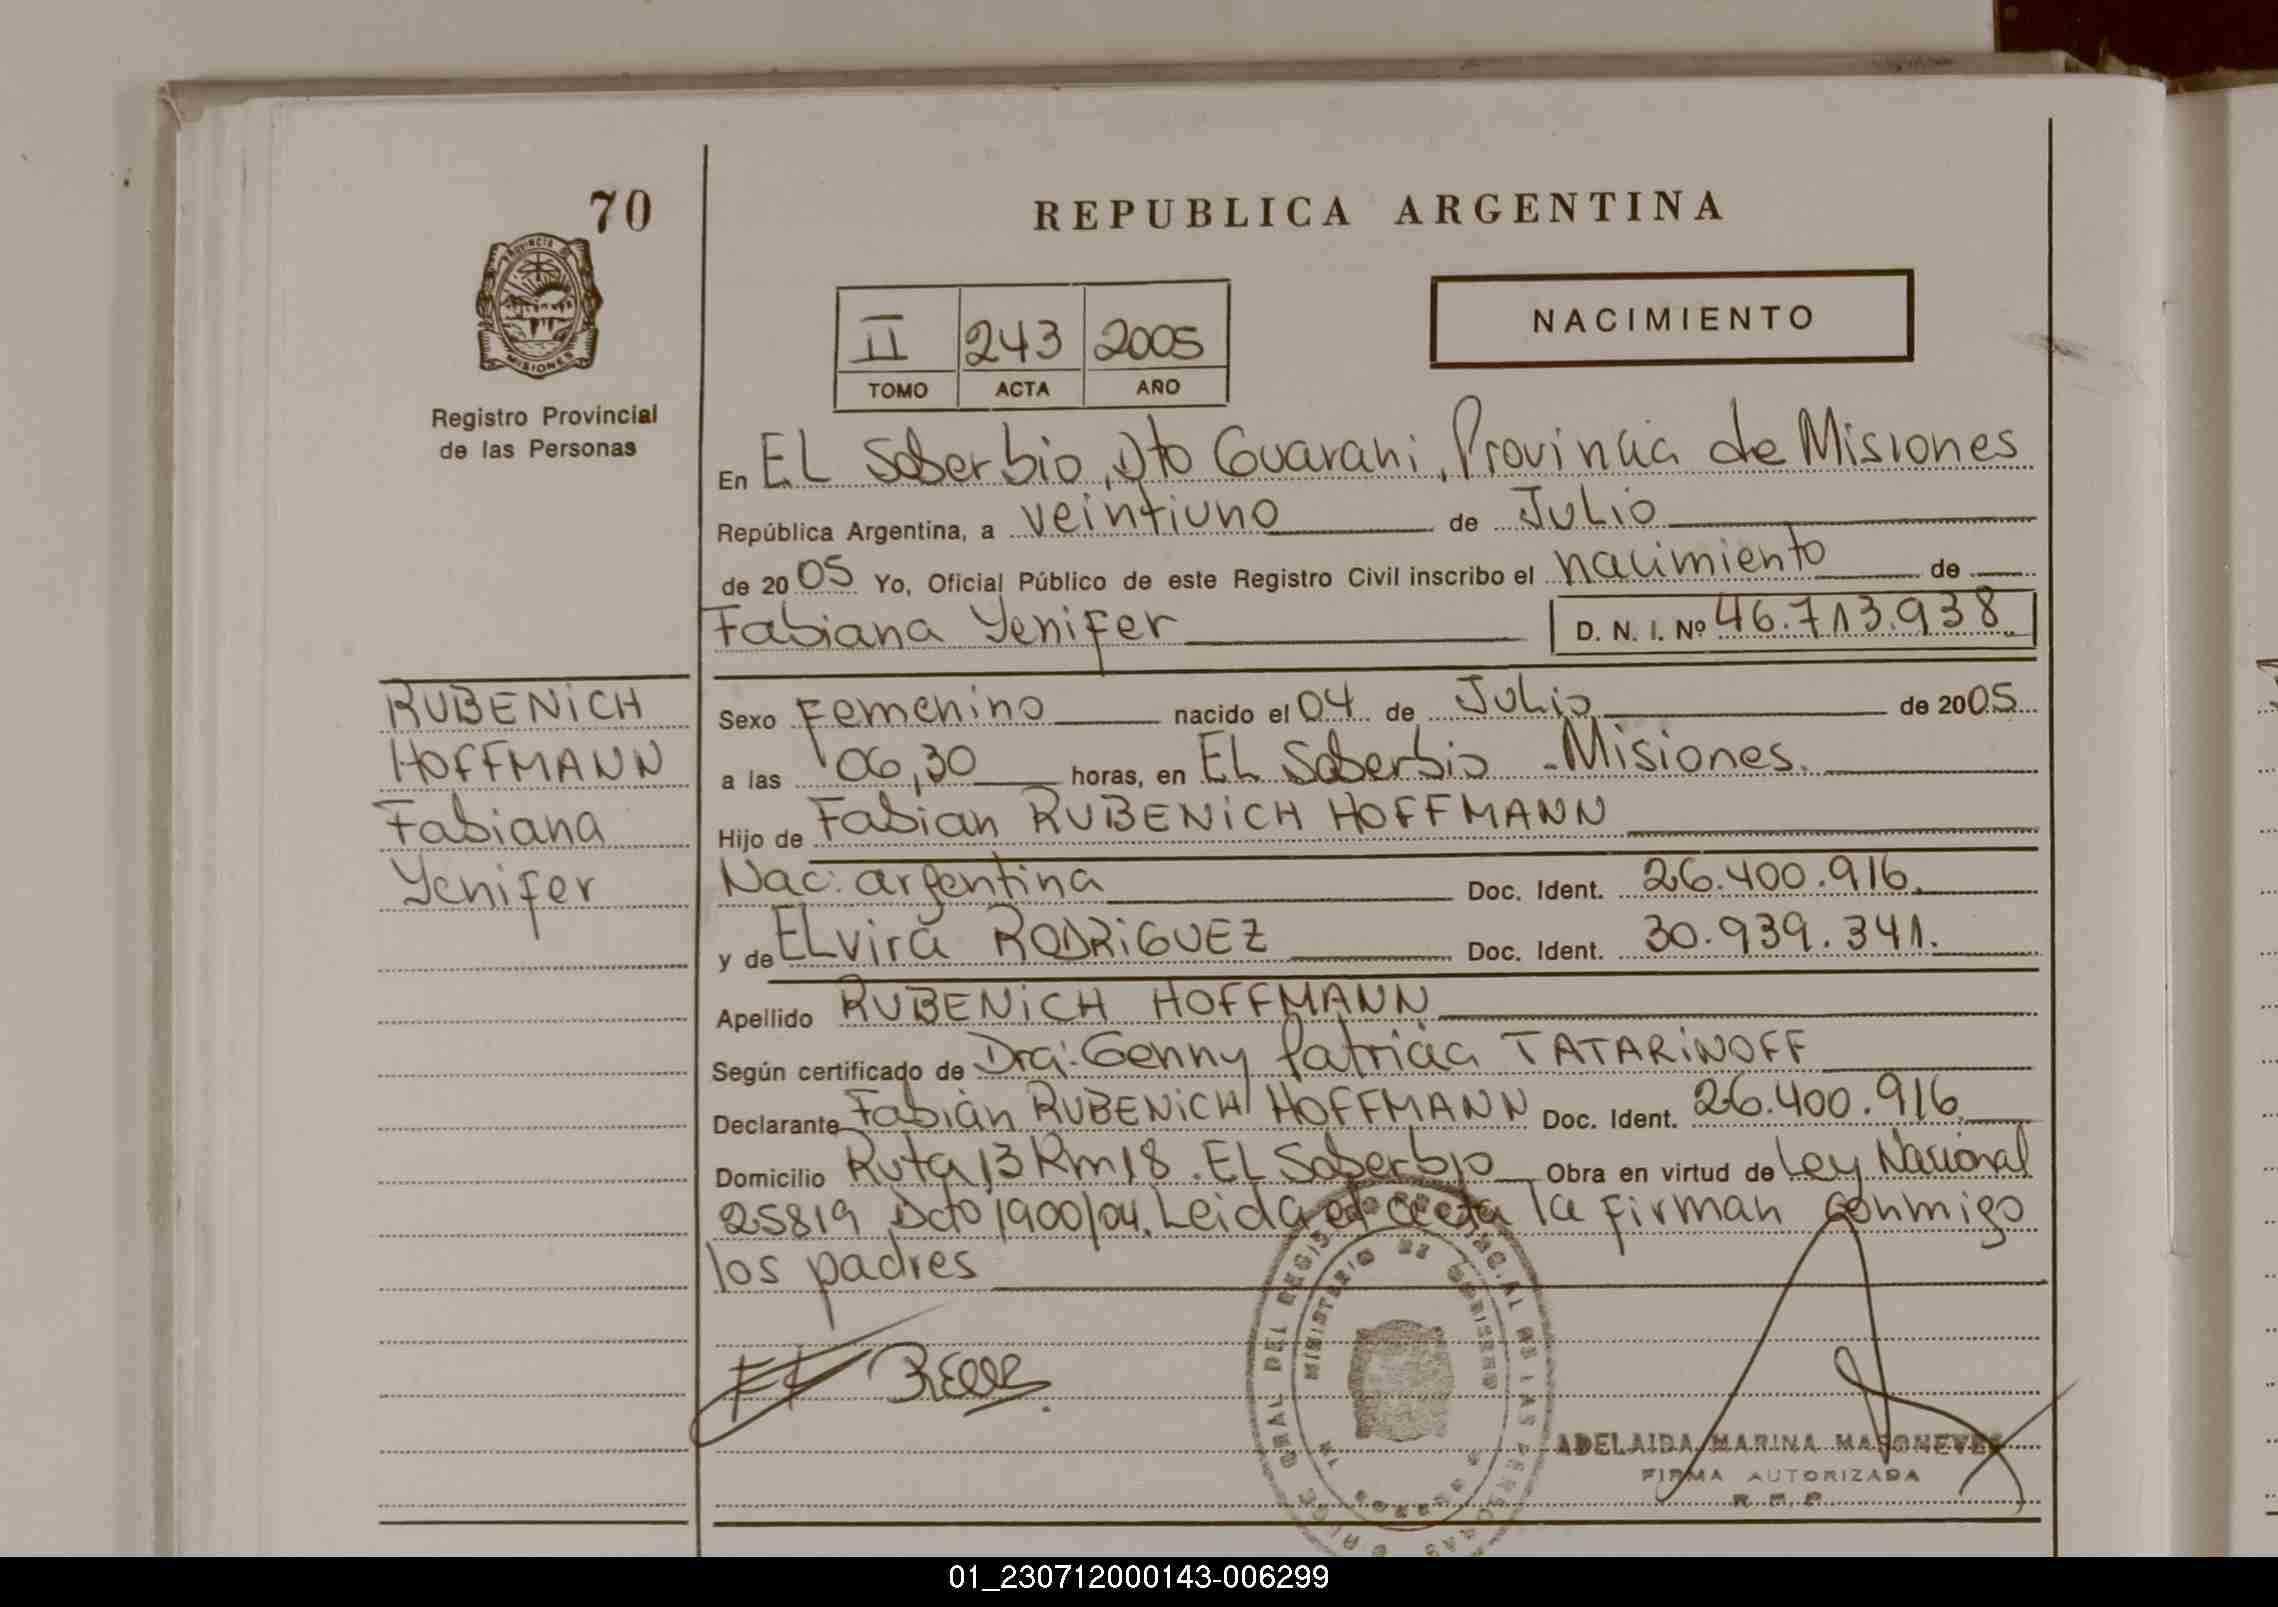 70
PROVINCIA DE
MISIONES
Registro Provincial
de las Personas
REPUBLICA ARGENTINA
II 243 2005
TOMO ACTA AÑO
NACIMIENTO
En EL Soberbio, Dto Guarani, Provincia de Misiones
República Argentina, a veintiuno de Julio
de 2005 Yo, Oficial Público de este Registro Civil inscribo el nacimiento de
Fabiana Yenifer D. N. I. Nº 46.713.938
RUBENICH
HOFFMANN
Fabiana
Yenifer
Sexo Femenino nacido el 04 de Julio de 2005
a las 06,30 horas, en EL Soberbio - Misiones.
Hijo de Fabian RUBENICH HOFFMANN
Nac: argentina Doc. Ident. 26.400.916.
y de ELvira RODRIGUEZ Doc. Ident. 30.939.341.
Apellido RUBENICH HOFFMANN
Según certificado de Dra: Genny Patricia TATARINOFF
Declarante Fabián RUBENICH HOFFMANN Doc. Ident. 26.400.916.
Domicilio Ruta 13 Km 18. EL Soberbio Obra en virtud de Ley Nacional
25819 Dcto 1900/04. Leida el acta la firman conmigo
los padres
MINISTERIO DE GOBIERNO
GRAL DEL
ADELAIDA MARINA
FIRMA AUTORIZADA
01_230712000143-006299